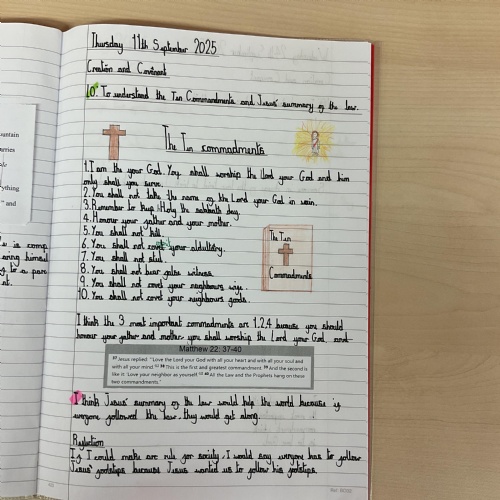 Thursday 11th September 2025
Creation and Covenant
LO: To understand the Ten Commandments and Jesus' summary of the law.
The Ten commadments
1. I am the your God. You shall worship the Lord your God and him
only shall you serve.
2. You shall not take the name of the Lord your God in vain.
3. Remember to keep Holy the sabbath day.
4. Honour your father and your mother.
5. You shall not kill.
6. You shall not covet your aldultery.
7. You shall not steal.
8. You shall not bear false witness.
9. You shall not covet your neighbours wife.
10. You shall not covet your neighbours goods.
The Ten
Commadments
I think the 3 most important commadments are 1,2,4 because you should
honour your father and mother, you shall worship the Lord your God, and
Matthew 22: 37-40
37 Jesus replied: "Love the Lord your God with all your heart and with all your soul and
with all your mind." 38 This is the first and greatest commandment. 39 And the second is
like it: 'Love your neighbor as yourself.' 40 All the Law and the Prophets hang on these
two commandments."
I think Jesus' summary of the law would help the world because if
everyone followed the law, they would get along.
Reflection
If I could make are rule for society, I would say everyone has to follow
Jesus' footsteps because Jesus wanted us to follow his footsteps.
untain
arries
ything
" and
is comp
aring himself
to a pare
nt.